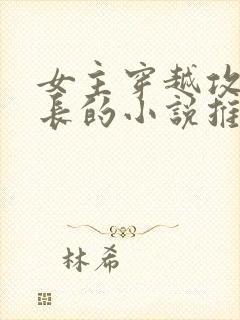 女主穿越攻
长的小说推
林希